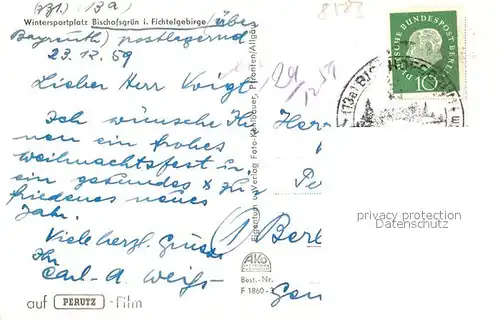 (13a)
Wintersportplatz Bischofsgrün i. Fichtelgebirge / über
Bayreuth) postlagernd
23.12.59
Lieber Herr Voigt
Ich wünsche Ih-
nen ein frohes
Weihnachtsfest u.
ein gesundes & zu-
friedenes neues
Jahr.
Viele herzl. Grüsse
Ihr
Carl-A. Weiß
auf PERUTZ-Film
Eigentum u. Verlag Foto-Kernbauer, Pfronten/Allgäu
AKO
Best.-Nr.
F 1860
8583
29/12 59
DEUTSCHE BUNDESPOST BERLIN
10
(13a)
Herr
1 Berl
privacy protection
Datenschutz